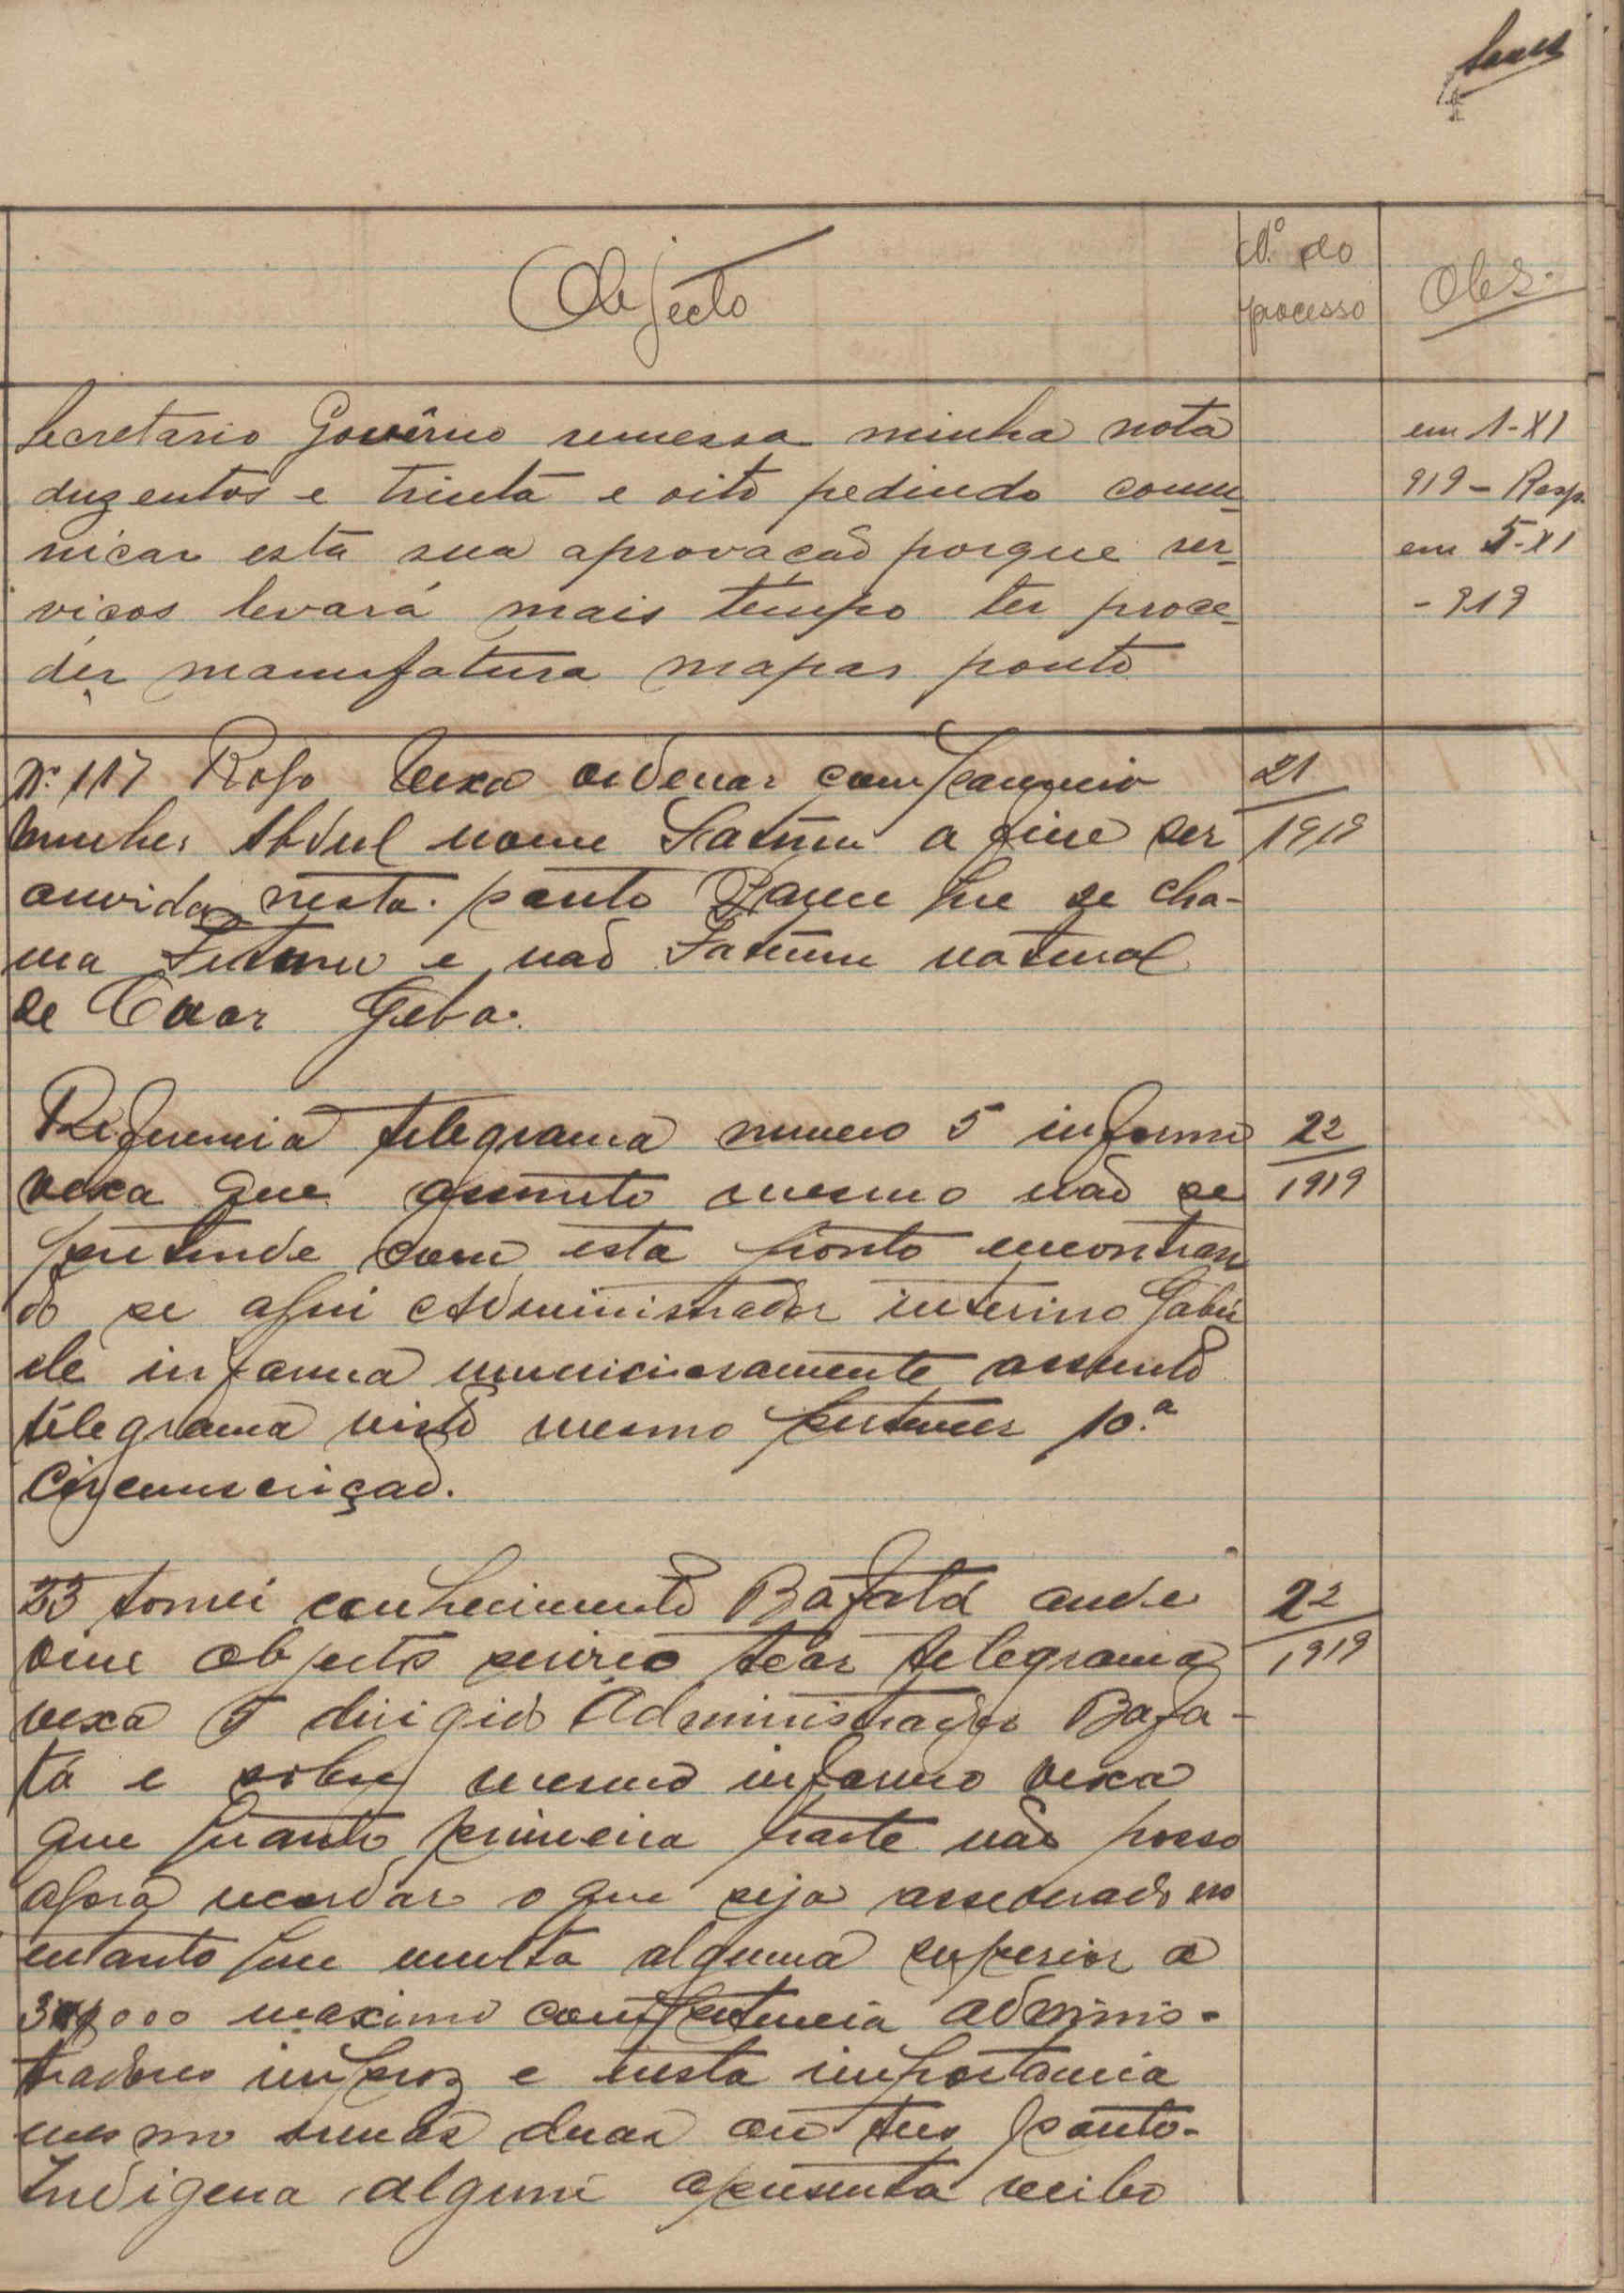 Objecto
N.º do
processo
Obs.
Secretario Govêrno remessa minha nota
duzentos e trinta e oito pedindo comu
nicar esta sua aprovação porque ser
viços levará mais tempo ter proce
der manufatura mapas ponto
em 1-XI
919 - Resp.
em 5-XI
- 919
Nº 117 Rogo vexa ordenar
mulher Abdul nome Fatuma a fim ser
ouvida nesta. ponto que se cha-
ma e não Fatuma natural
de Geba.
21
1919
Referencia telegrama numero 5 informo
vexa que assunto mesmo não se
pretende com esta ponto encontran
do se aqui Administrador interino Gabú
ele informa minuciosamente assunto
telegrama visto mesmo pertencer 10.ª
Circunscrição.
22
1919
23 tomei conhecimento Bafatá onde
vim objecto serviço teor telegrama
vexa 5 dirigido Administração Bafa-
tá e sobre mesmo informo vexa
que quanto primeira parte não posso
agora recordar o que seja assegurado no
entanto que multa alguma superior a
30$000 maximo competencia adminis-
tradores impuz e nesta importancia
mesmo duas ou tres ponto-
Indigena algum apresenta recibo
22
1919